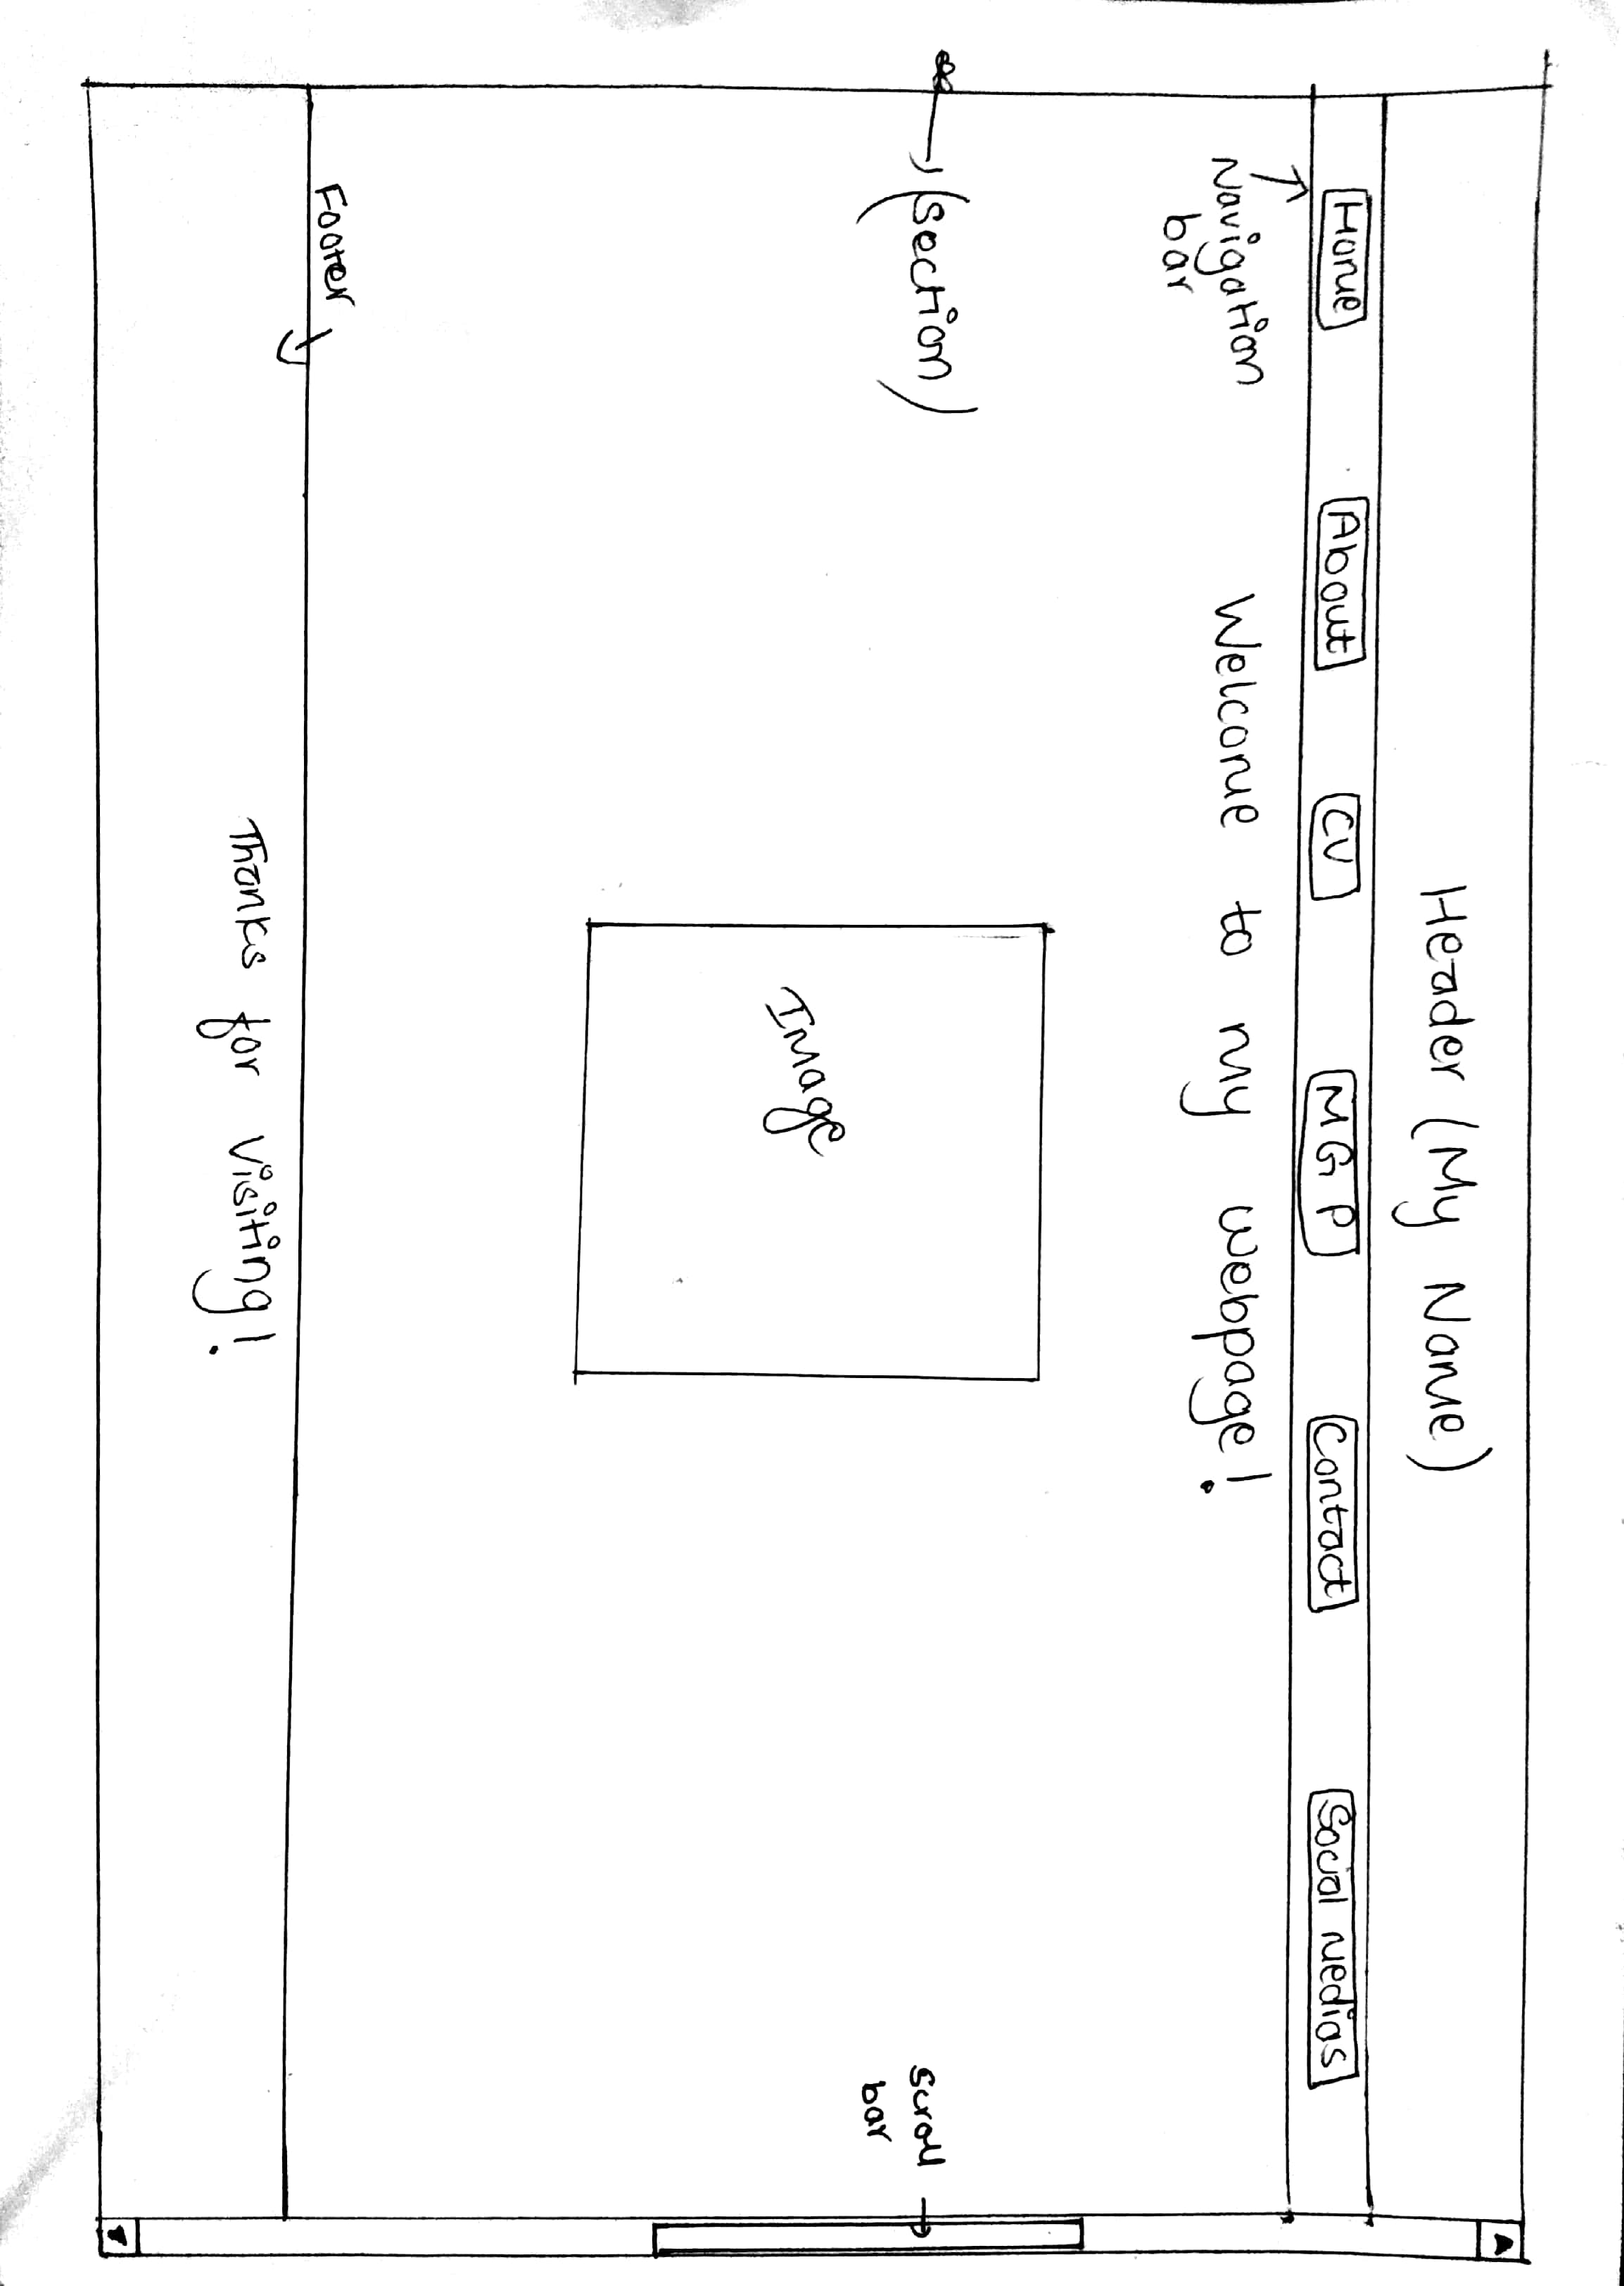 Header (My Name)
Home About CV MGP Contact Social Medias
Navigation
bar
Welcome to my webpage!
(section)
Scroll
bar
Image
Footer
Thanks for Visiting!